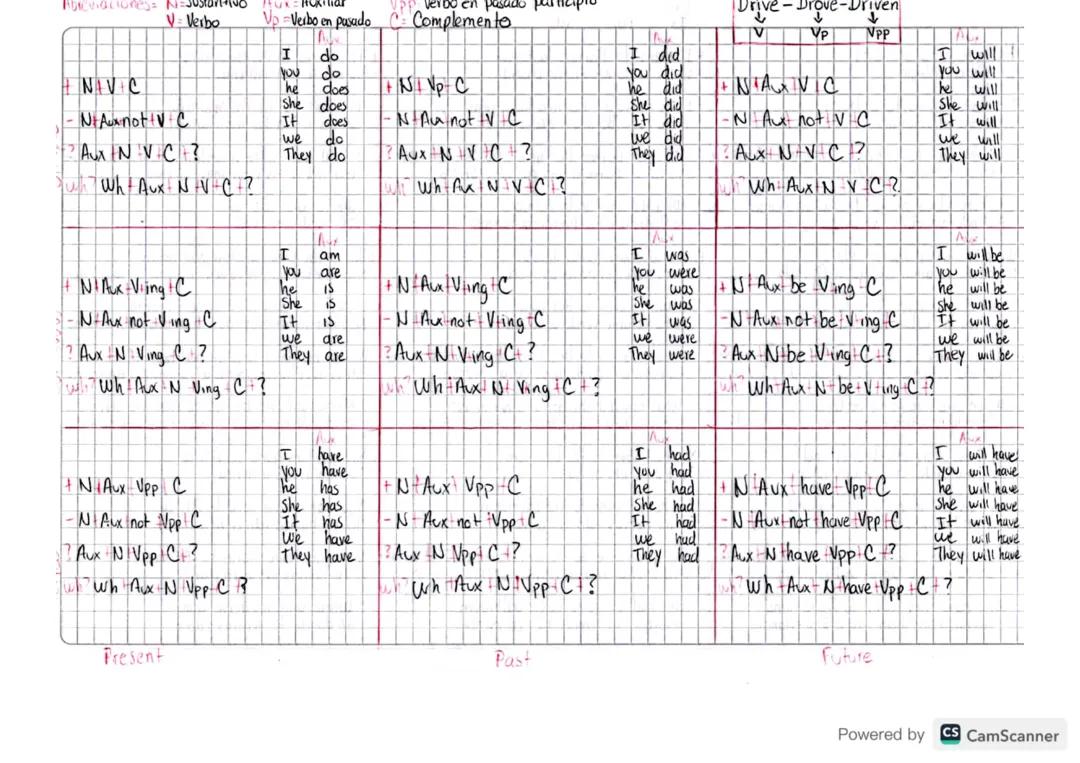 Abreviaciones= N=Sustantivo Aux=Auxiliar Vpp=Verbo en pasado participio
V=Verbo Vp=Verbo en pasado C=Complemento
Drive - Drove - Driven
V Vp Vpp
Aux
I do
you do
he does
She does
It does
we do
They do
+ N+V+C
- N+Aux+not+V+C
? Aux+N+V+C+?
wh? Wh+Aux+N+V+C+?
Aux
I did
you did
he did
She did
It did
we did
They did
+ N+Vp+C
- N+Aux+not+V+C
? Aux+N+V+C+?
wh? Wh+Aux+N+V+C+?
Aux
I will
you will
he will
She will
It will
we will
They will
+ N+Aux+V+C
- N+Aux+not+V+C
? Aux+N+V+C+?
wh? Wh+Aux+N+V+C+?
Aux
I am
you are
he is
She is
It is
we are
They are
+ N+Aux+V+ing+C
- N+Aux+not+V+ing+C
? Aux+N+V+ing+C+?
wh? Wh+Aux+N+V+ing+C+?
Aux
I was
you were
he was
She was
It was
we were
They were
+ N+Aux+V+ing+C
- N+Aux+not+V+ing+C
? Aux+N+V+ing+C+?
wh? Wh+Aux+N+V+ing+C+?
Aux
I will be
you will be
he will be
she will be
It will be
we will be
They will be
+ N+Aux+be+V+ing+C
- N+Aux+not+be+V+ing+C
? Aux+N+be+V+ing+C+?
wh? Wh+Aux+N+be+V+ing+C+?
Aux
I have
you have
he has
She has
It has
We have
They have
+ N+Aux+Vpp+C
- N+Aux+not+Vpp+C
? Aux+N+Vpp+C+?
wh? Wh+Aux+N+Vpp+C+?
Aux
I had
you had
he had
She had
It had
we had
They had
+ N+Aux+Vpp+C
- N+Aux+not+Vpp+C
? Aux+N+Vpp+C+?
wh? Wh+Aux+N+Vpp+C+?
Aux
I will have
you will have
he will have
She will have
It will have
we will have
They will have
+ N+Aux+have+Vpp+C
- N+Aux+not+have+Vpp+C
? Aux+N+have+Vpp+C+?
wh? Wh+Aux+N+have+Vpp+C+?
Present Past Future
Powered by CS CamScanner